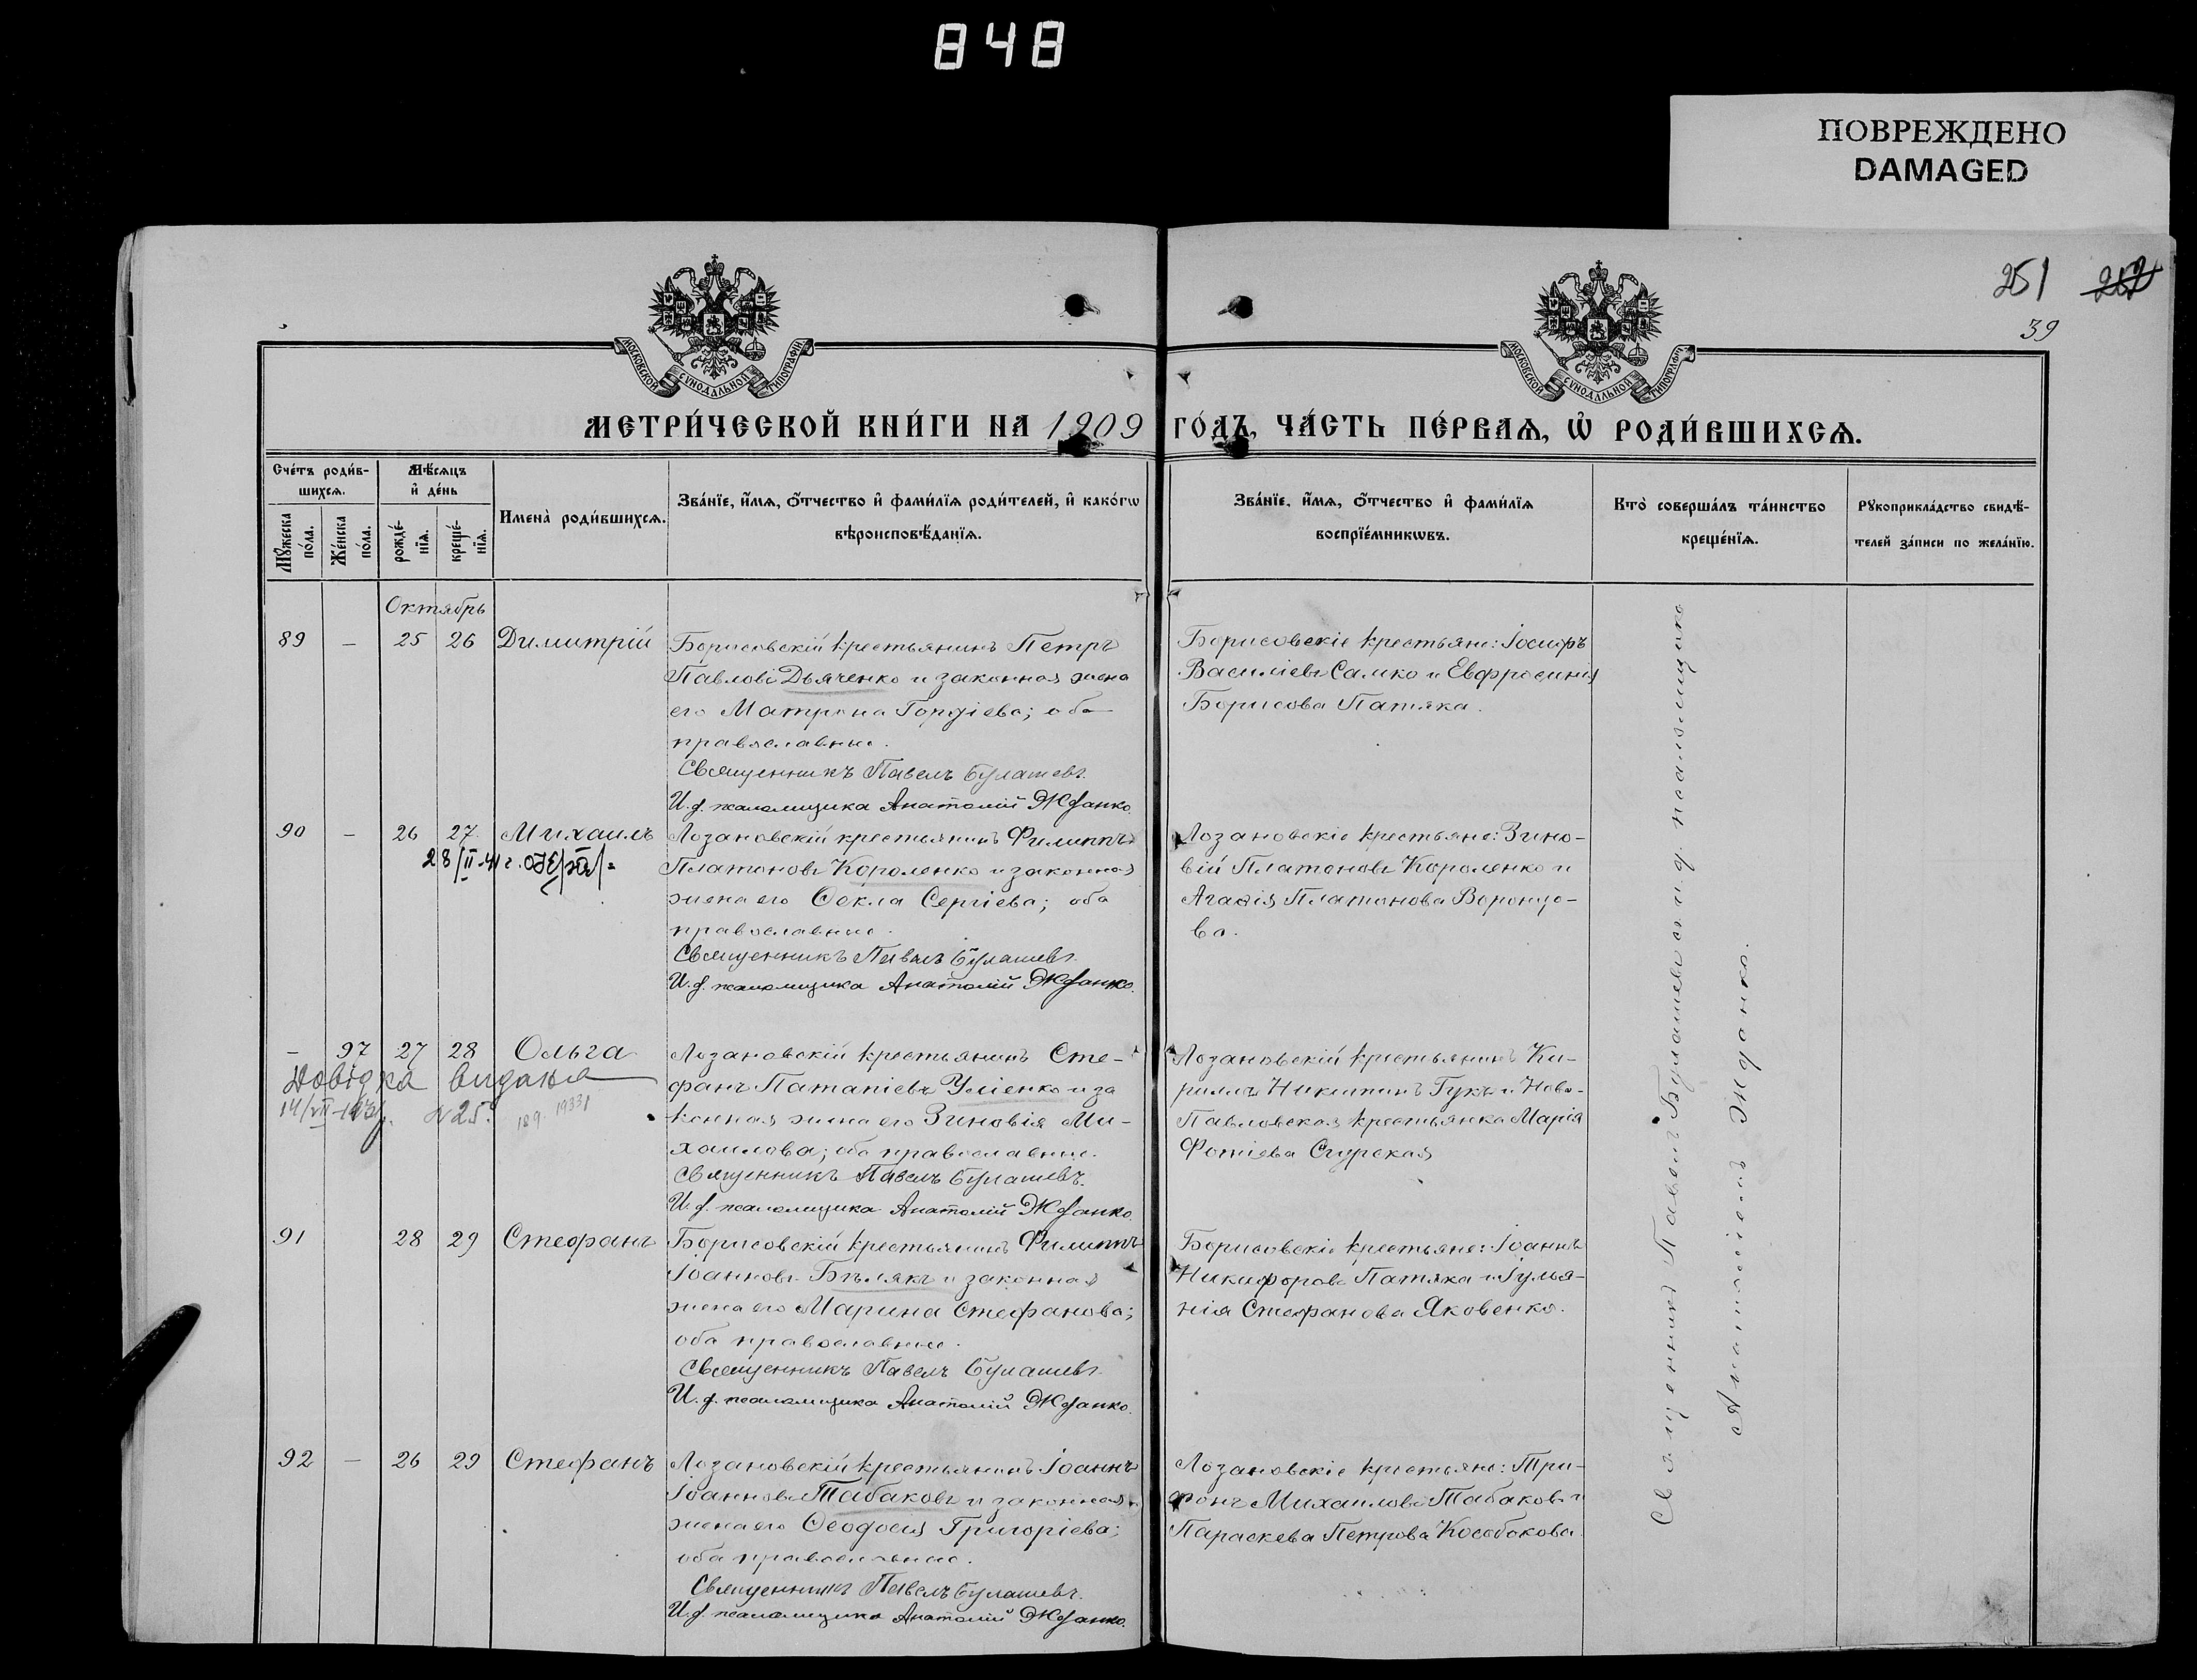 848
ПОВРЕЖДЕНО
DAMAGED
251 252
39
МОСКОВСКОЙ СѴНОДАЛЬНОЙ ТИПОГРАФІИ
МОСКОВСКОЙ СѴНОДАЛЬНОЙ ТИПОГРАФІИ
МЕТРИ́ЧЕСКОЙ КНИ́ГИ НА 1909 ГО́ДЪ, ЧА́СТЬ ПЕ́РВАѦ, Ѡ҆ РОДИ́ВШИХСѦ.
Сче́тъ роди́в-
шихсѧ.
Мꙋ́жеска по́ла.
Же́нска по́ла.
Мѣ́сѧцъ
и҆ де́нь
рожде́-нїѧ.
креще́-нїѧ.
Имена̀ роди́вшихсѧ.
Зва́нїе, и҆́мѧ, ѻ҆́тчество и҆ фами́лїѧ роди́телей, и҆ како́гѡ
вѣроисповѣ́данїѧ.
Зва́нїе, и҆́мѧ, ѻ҆́тчество и҆ фами́лїѧ
воспрїе́мникѡвъ.
Кто̀ соверша́лъ та́инство
креще́нїѧ.
Рꙋкоприкла́дство свидѣ́-
телей за́писи по жела́нїю.
Октябрь
89 — 25 26 Димитрій
Борисовскій крестьянинъ Петръ
Павловъ Дьяченко и законная жена
его Матрона Гордіева; оба
православные.
Священникъ Павелъ Булашевъ.
И. д. псаломщика Анатолій Жданко.
Борисовскіе крестьяне: Іосифъ
Василіевъ Самко и Евфросинія
Борисова Патяка.
90 — 26 27 Михаилъ
28/II-41 г.
Лозановскій крестьянинъ Филиппъ
Платоновъ Короленко и законная
жена его Ѳекла Сергіева; оба
православные.
Священникъ Павелъ Булашевъ.
И. д. псаломщика Анатолій Жданко.
Лозановскіе крестьяне: Зино-
вій Платоновъ Короленко и
Агафія Платонова Воронцо-
ва.
— 97 27 28 Ольга
Довідка видана
14/VII N 25.
189. 1933
Лозановскій крестьянинъ Сте-
фанъ Патапіевъ Уліенко и за
конная жена его Зиновія Ми-
хаилова; оба православные.
Священникъ Павелъ Булашевъ.
И. д. псаломщика Анатолій Жданко.
Лозановскій крестьянинъ Ки-
риллъ Никитинъ Гукъ и Ново-
Павловская крестьянка Марія
Фотіева Сгурская
91 28 29 Стефанъ
Борисовскій крестьянинъ Филиппъ
Іоанновъ Бѣлякъ и законная
жена его Марина Стефанова;
оба православные.
Священникъ Павелъ Булашевъ.
И. д. псаломщика Анатолій Жданко.
Борисовскіе крестьяне: Іоаннъ
Никифоровъ Патяка и Іулья-
нія Стефанова Яковенко.
92 — 26 29 Стефанъ
Лозановскій крестьянинъ Іоаннъ
Іоанновъ Табаковъ и законная
жена его Ѳеодосія Григоріева;
оба православные.
Священникъ Павелъ Булашевъ.
И. д. псаломщика Анатолій Жданко.
Лозановскіе крестьяне: Три-
фонъ Михаиловъ Табаковъ и
Параскева Петрова Кособокова.
Священникъ Павелъ Булашевъ с и. д. псаломщика
Анатоліемъ Жданко.